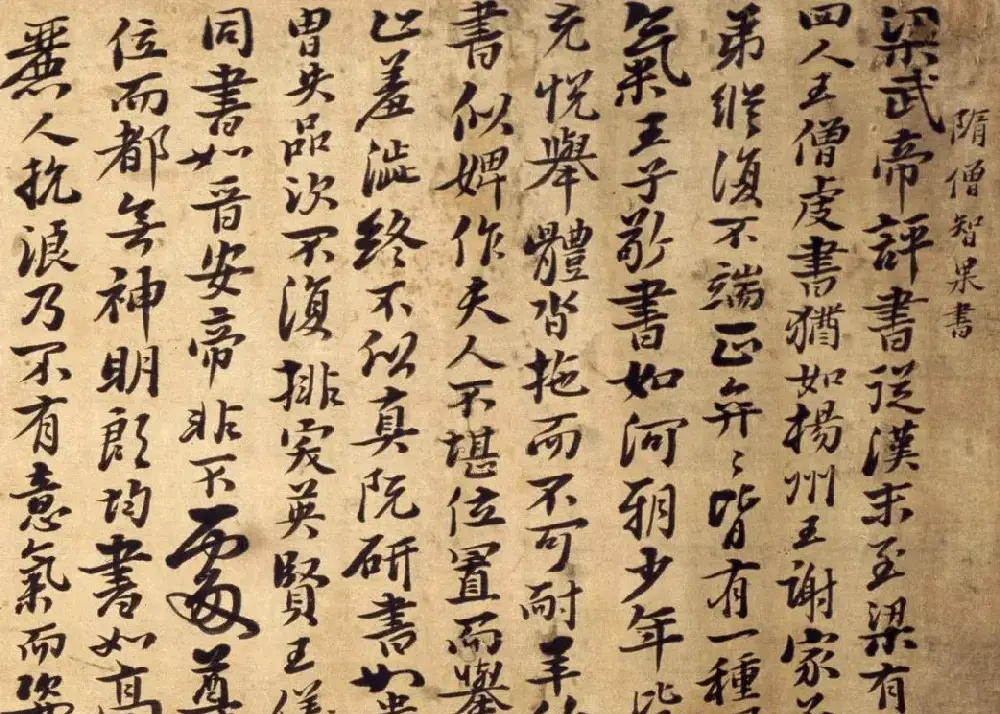 隋僧智果書
梁武帝評書從漢末至梁有
四人王僧虔書猶如揚州王謝家
弟縱復不端正弈〻皆有一種
氣王子敬書如河朔少年
充悅舉體沓拖而不可耐羊
書似婢作夫人不堪位置而舉
止羞澁終不似真阮研書如貴
胄失品次不復排突英賢王儀
同書如晉安帝非不處尊
位而都無神明郎均書如高
麗人抗浪乃不有意氣而姿